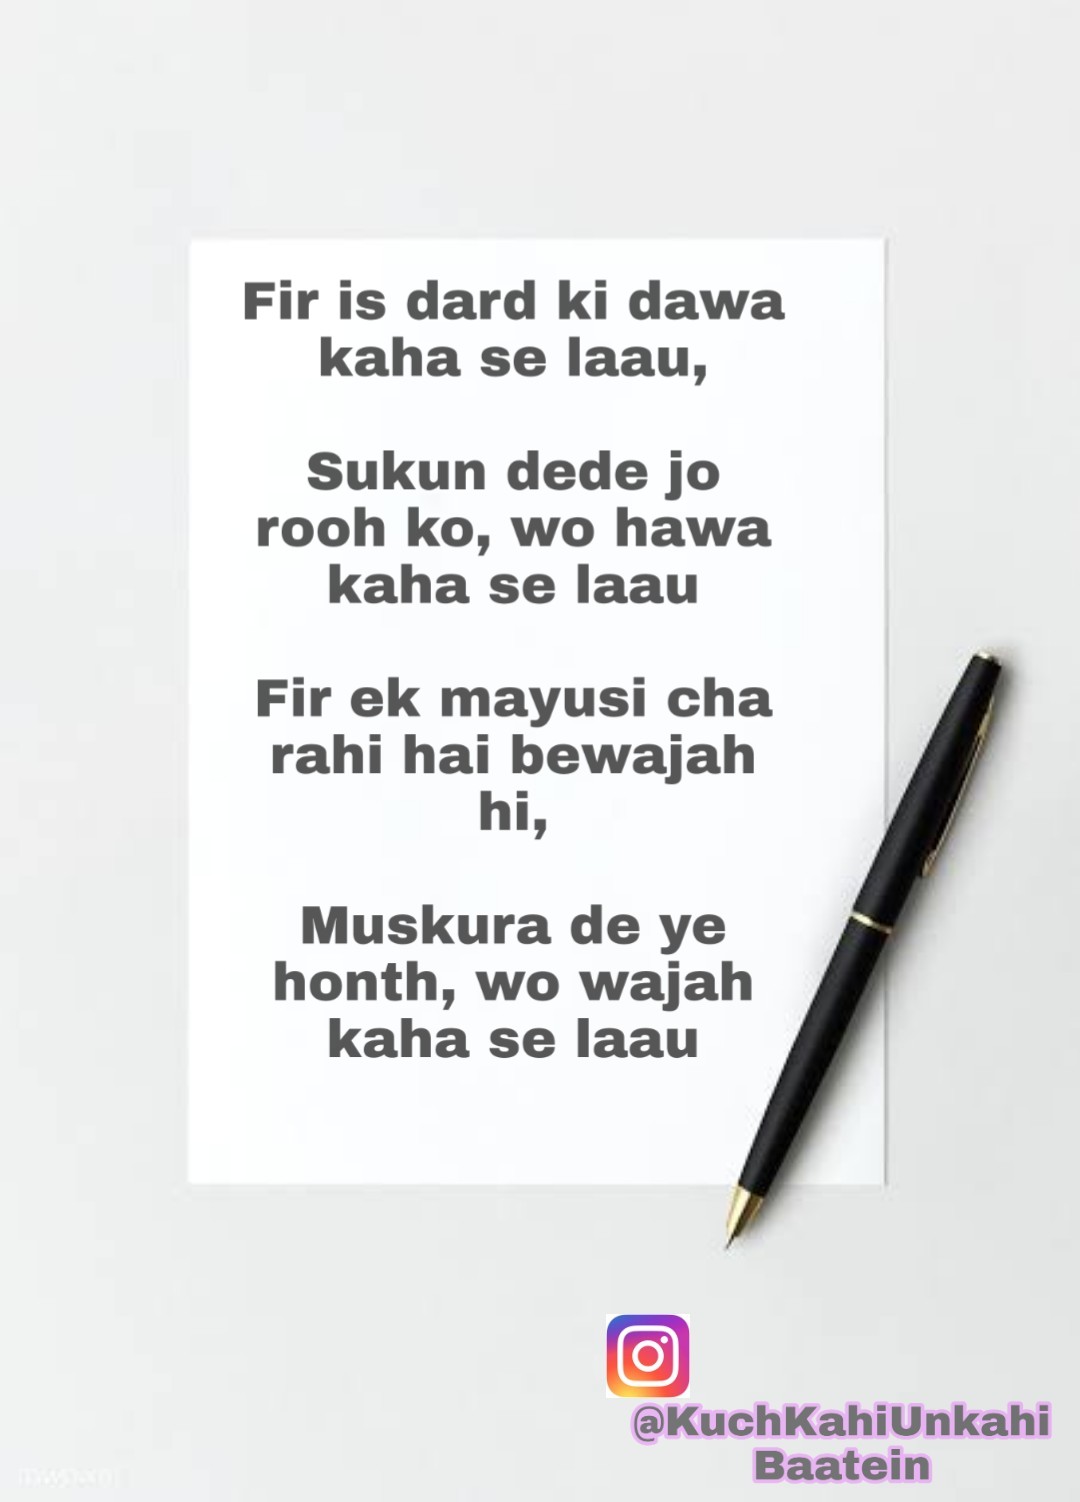 Fir is dard ki dawa
kaha se laau,
Sukun dede jo
rooh ko, wo hawa
kaha se laau
Fir ek mayusi cha
rahi hai bewajah
hi,
Muskura de ye
honth, wo wajah
kaha se laau
@KuchKahiUnkahi
Baatein